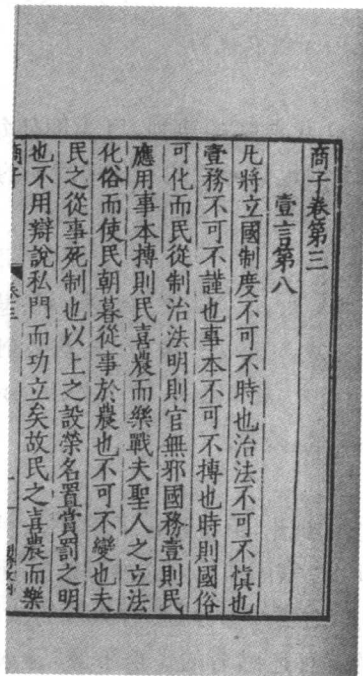 商子卷第三
壹言第八
凡將立國制度不可不時也治法不可不慎也
壹務不可不謹也事本不可不摶也時則國俗
可化而民從制治法明則官無邪國務壹則民
應用事本摶則民喜農而樂戰夫聖人之立法
化俗而使民朝暮從事於農也不可不變也夫
民之從事死制也以上之設榮名置賞罰之明
也不用辯說私門而功立矣故民之喜農而樂
商子 卷三